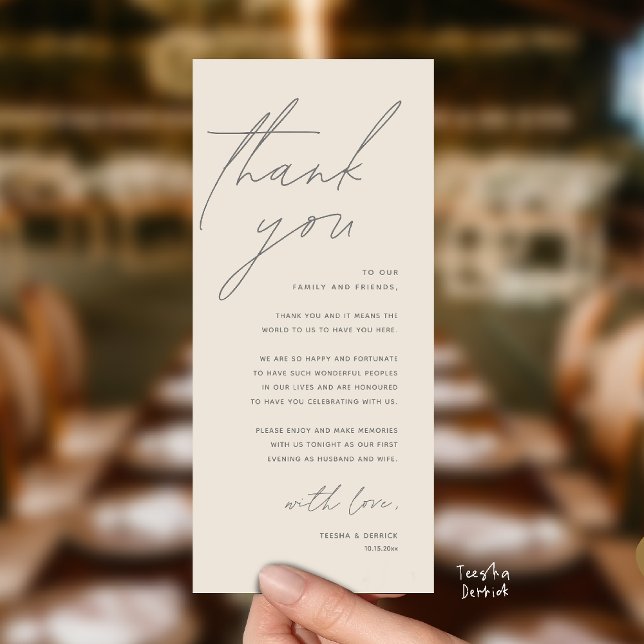 thank
you
TO OUR
FAMILY AND FRIENDS,
THANK YOU AND IT MEANS THE
WORLD TO US TO HAVE YOU HERE.
WE ARE SO HAPPY AND FORTUNATE
TO HAVE SUCH WONDERFUL PEOPLES
IN OUR LIVES AND ARE HONOURED
TO HAVE YOU CELEBRATING WITH US.
PLEASE ENJOY AND MAKE MEMORIES
WITH US TONIGHT AS OUR FIRST
EVENING AS HUSBAND AND WIFE.
with love,
TEESHA & DERRICK
10.15.20xx
Teesha
Derrick